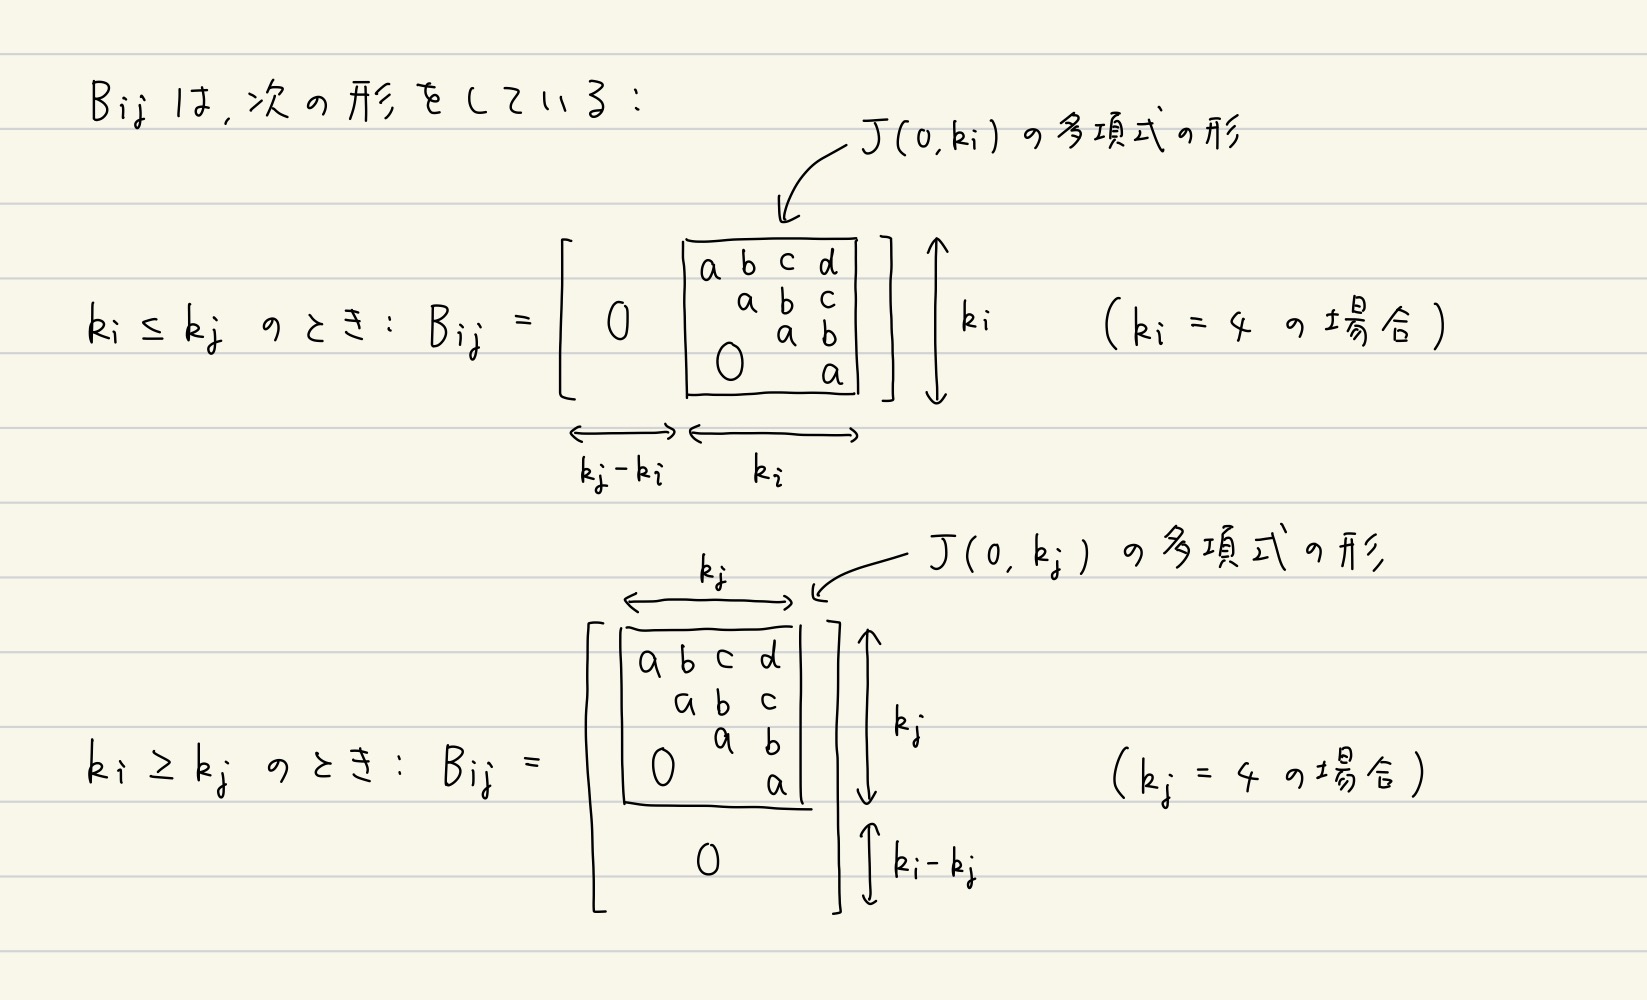 Bij は, 次の形をしている:
J(0, ki) の多項式の形
ki ≤ kj のとき: Bij = [ 0
a b c d
a b c
a b
0 a
] ki (ki = 4 の場合)
kj - ki ki
J(0, kj) の多項式の形
kj
ki ≥ kj のとき: Bij = [
a b c d
a b c
a b
0 a
0
] kj (kj = 4 の場合)
ki - kj